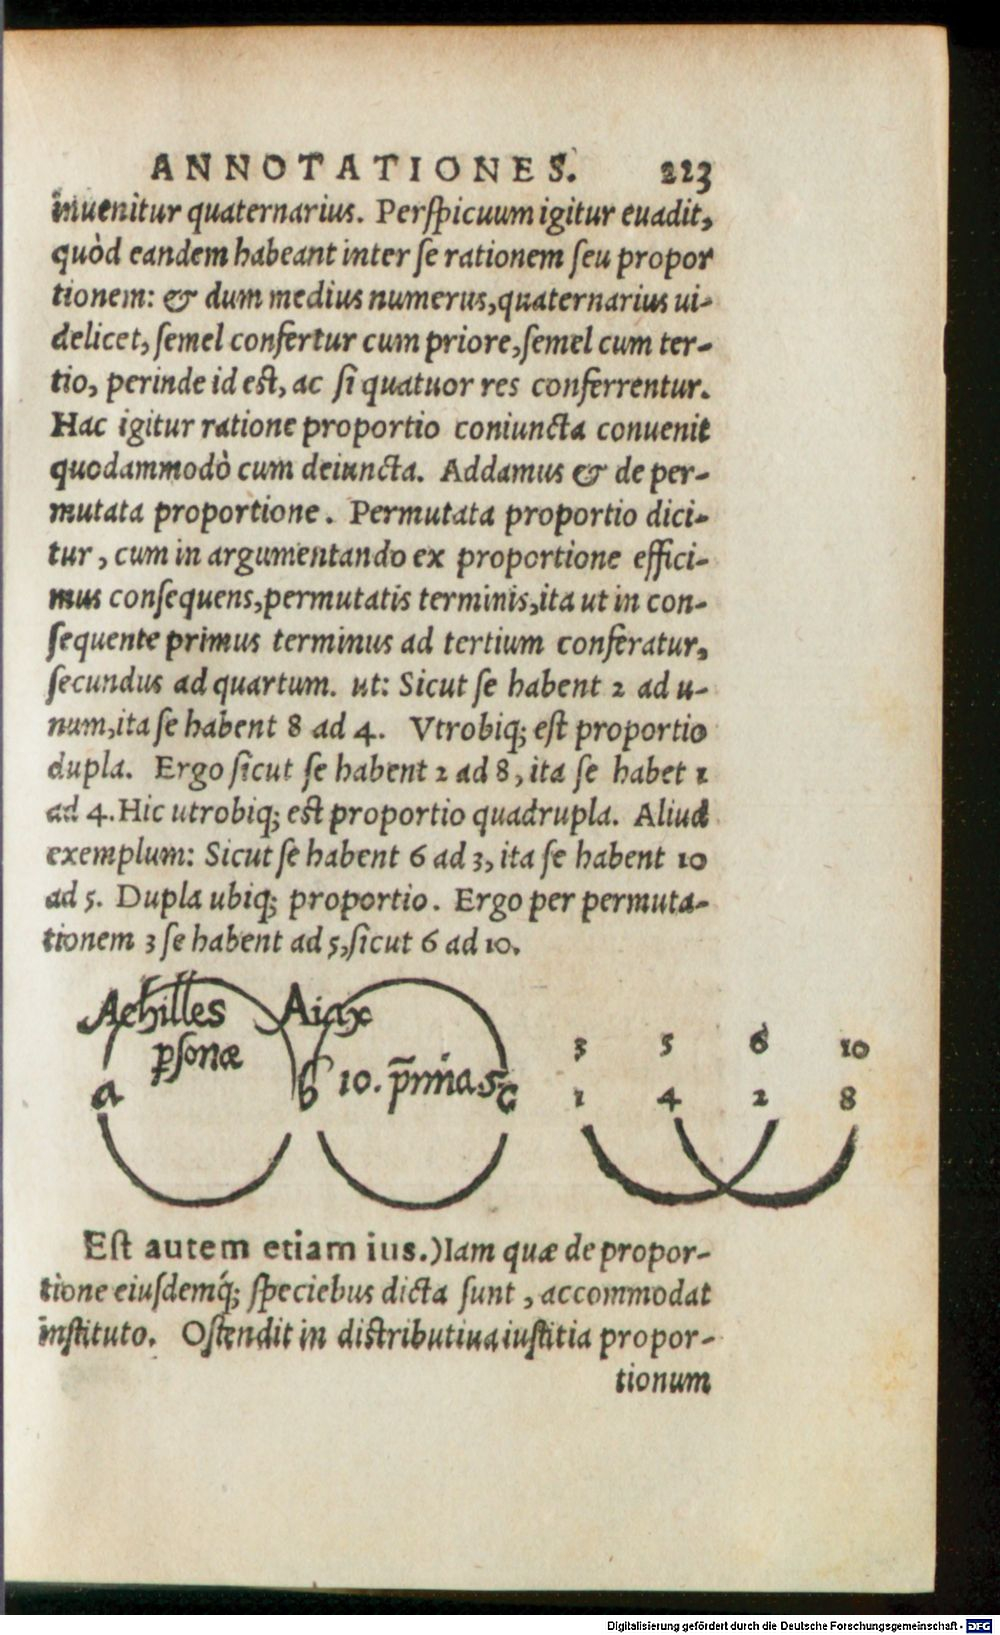 ANNOTATIONES. 223
inuenitur quaternarius. Perſpicuum igitur euadit,
quòd eandem habeant inter ſe rationem ſeu propor
tionem: & dum medius numerus, quaternarius ui-
delicet, ſemel confertur cum priore, ſemel cum ter-
tio, perinde id eſt, ac ſi quatuor res conferrentur.
Hac igitur ratione proportio coniuncta conuenit
quodammodò cum deiuncta. Addamus & de per-
mutata proportione. Permutata proportio dici-
tur, cum in argumentando ex proportione effici-
mus conſequens, permutatis terminis, ita ut in con-
ſequente primus terminus ad tertium conferatur,
ſecundus ad quartum. ut: Sicut ſe habent 2 ad u-
num, ita ſe habent 8 ad 4. Vtrobiq; eſt proportio
dupla. Ergo ſicut ſe habent 2 ad 8, ita ſe habet 1
ad 4. Hic utrobiq; eſt proportio quadrupla. Aliud
exemplum: Sicut ſe habent 6 ad 3, ita ſe habent 10
ad 5. Dupla ubiq; proportio. Ergo per permuta-
tionem 3 ſe habent ad 5, ſicut 6 ad 10.
Achilles Aiax
ꝑſonæ
a b 10. p̃mia 5 c
3 5 6 10
1 4 2 8
Eſt autem etiam ius.) Iam quæ de propor-
tione eiuſdemq́; ſpeciebus dicta ſunt, accommodat
inſtituto. Oſtendit in diſtributiua iuſtitia propor-
tionum
Digitalisierung gefördert durch die Deutsche Forschungsgemeinschaft - DFG